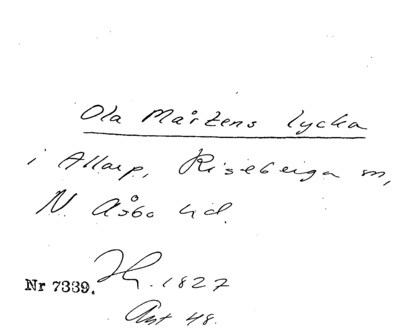 Ola Mårtens lycka
i Allarp, Riseberga sn,
N. Åsbo hd.
Nr 7339. 1827
Ant 48.